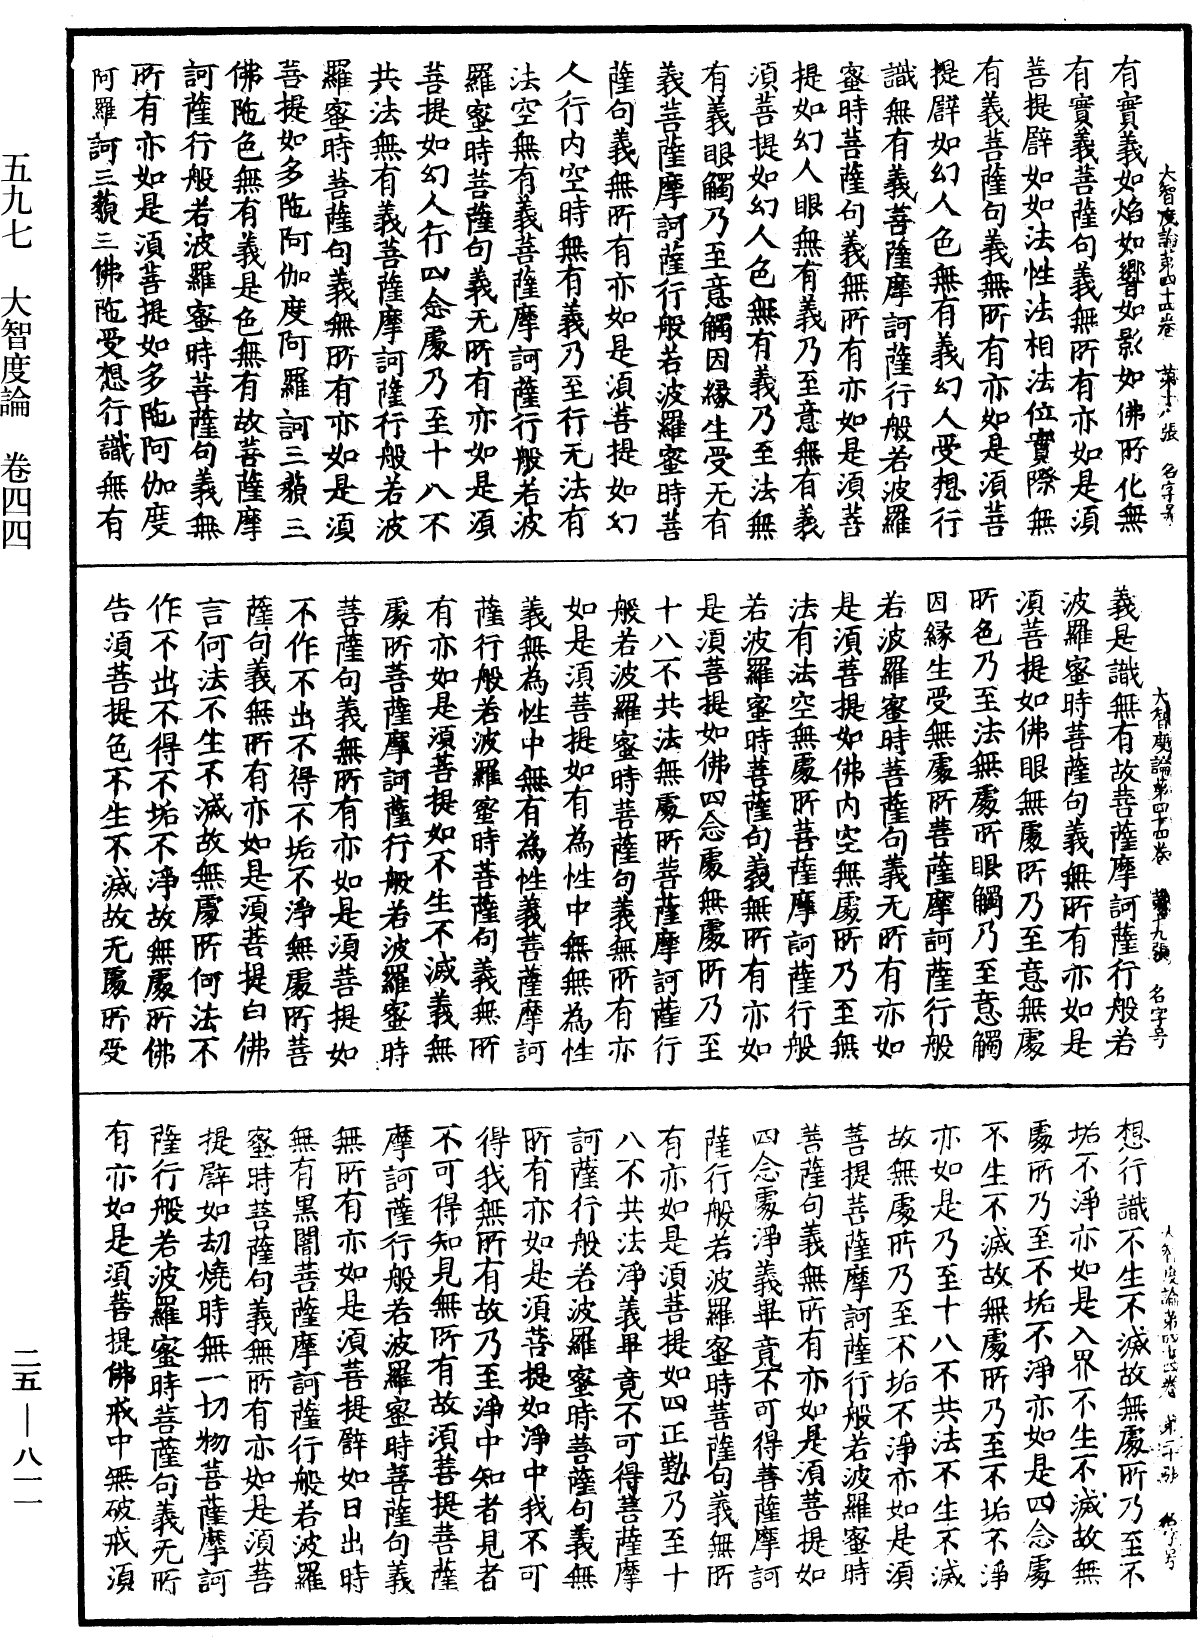 大智度論第四十四卷 第十八張 名字号
有實義如焰如響如影如佛所化無
有實義菩薩句義無所有亦如是湏
菩提譬如如法性法相法位實際無
有義菩薩句義無所有亦如是湏菩
提譬如幻人色無有義幻人受想行
識無有義菩薩摩訶薩行般若波羅
蜜時菩薩句義無所有亦如是湏菩
提如幻人眼無有義乃至意無有義
湏菩提如幻人色無有義乃至法無
有義眼觸乃至意觸因緣生受无有
義菩薩摩訶薩行般若波羅蜜時菩
薩句義無所有亦如是湏菩提如幻
人行內空時無有義乃至行无法有
法空無有義菩薩摩訶薩行般若波
羅蜜時菩薩句義无所有亦如是湏
菩提如幻人行四念處乃至十八不
共法無有義菩薩摩訶薩行般若波
羅蜜時菩薩句義無所有亦如是湏
菩提如多陁阿伽度阿羅訶三藐三
佛陁色無有義是色無有故菩薩摩
訶薩行般若波羅蜜時菩薩句義無
所有亦如是湏菩提如多陁阿伽度
阿羅訶三藐三佛陁受想行識無有
大智度論第四十四卷 第十九張 名字号
義是識無有故菩薩摩訶薩行般若
波羅蜜時菩薩句義無所有亦如是
湏菩提如佛眼無處所乃至意無處
所色乃至法無處所眼觸乃至意觸
因緣生受無處所菩薩摩訶薩行般
若波羅蜜時菩薩句義无所有亦如
是湏菩提如佛內空無處所乃至無
法有法空無處所菩薩摩訶薩行般
若波羅蜜時菩薩句義無所有亦如
是湏菩提如佛四念處無處所乃至
十八不共法無處所菩薩摩訶薩行
般若波羅蜜時菩薩句義無所有亦
如是湏菩提如有為性中無無為性
義無為性中無有為性義菩薩摩訶
薩行般若波羅蜜時菩薩句義無所
有亦如是湏菩提如不生不滅義無
處所菩薩摩訶薩行般若波羅蜜時
菩薩句義無所有亦如是湏菩提如
不作不出不得不垢不淨無處所菩
薩句義無所有亦如是湏菩提白佛
言何法不生不滅故無處所何法不
作不出不得不垢不淨故無處所佛
告湏菩提色不生不滅故无處所受
大智度論第四十四卷 第二十張 名字号
想行識不生不滅故無處所乃至不
垢不淨亦如是入界不生不滅故無
處所乃至不垢不淨亦如是四念處
不生不滅故無處所乃至不垢不淨
亦如是乃至十八不共法不生不滅
故無處所乃至不垢不淨亦如是湏
菩提菩薩摩訶薩行般若波羅蜜時
菩薩句義無所有亦如是湏菩提如
四念處淨義畢竟不可得菩薩摩訶
薩行般若波羅蜜時菩薩句義無所
有亦如是湏菩提如四正勤乃至十
八不共法淨義畢竟不可得菩薩摩
訶薩行般若波羅蜜時菩薩句義無
所有亦如是湏菩提如淨中我不可
得我無所有故乃至淨中知者見者
不可得知見無所有故湏菩提菩薩
摩訶薩行般若波羅蜜時菩薩句義
無所有亦如是湏菩提譬如日出時
無有黑闇菩薩摩訶薩行般若波羅
蜜時菩薩句義無所有亦如是湏菩
提譬如劫燒時無一切物菩薩摩訶
薩行般若波羅蜜時菩薩句義无所
有亦如是湏菩提佛戒中無破戒湏
五九七 大智度論 卷四四
二五—八一一